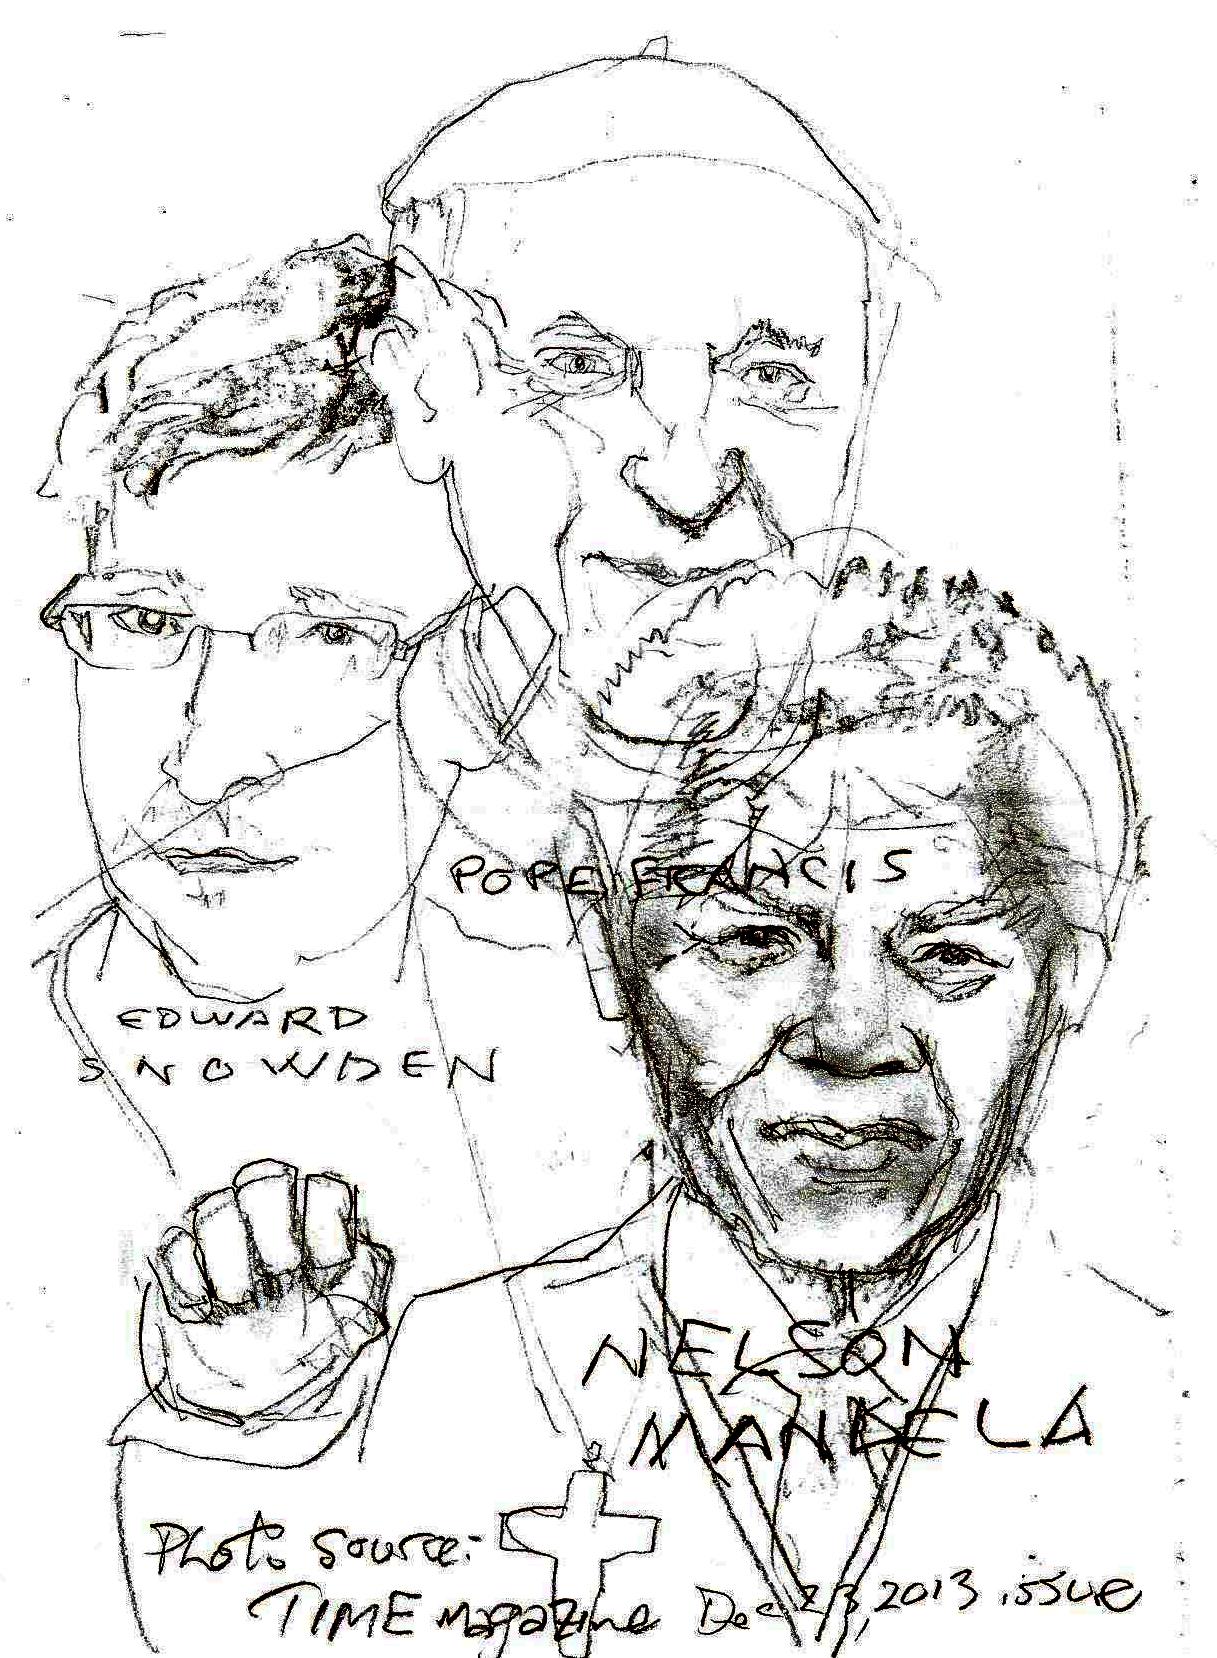 POPE FRANCIS
EDWARD
SNOWDEN
NELSON
MANDELA
Photo source:
TIME magazine Dec 23, 2013 issue